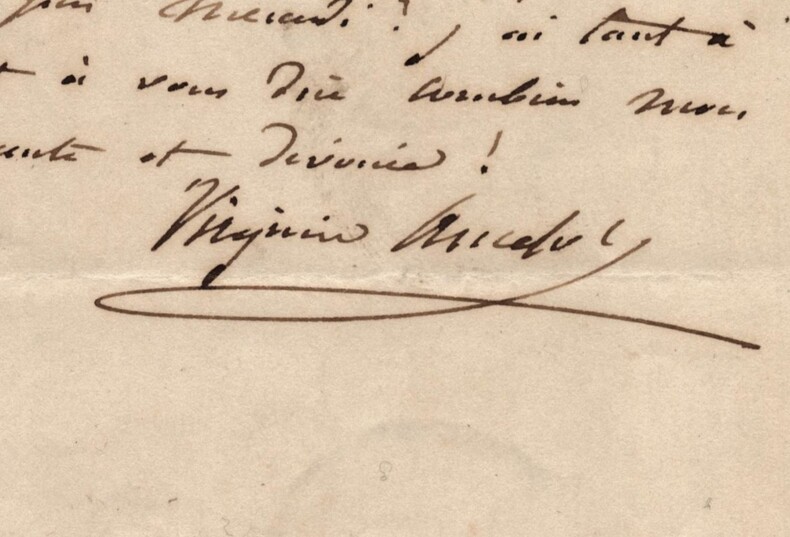 Mercredi? j'ai tant à
à vous dire combien mon
et dévouée!
Virginie Ancelot